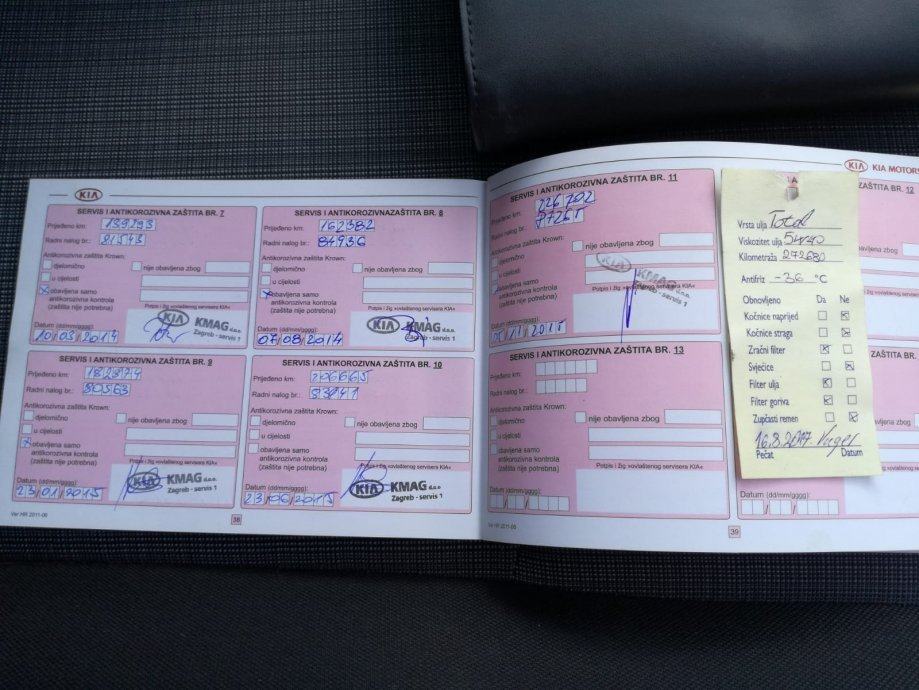 KIA
SERVIS I ANTIKOROZIVNA ZAŠTITA BR. 7
Prijeđeno km: 139293
Radni nalog br.: 81543
Antikorozivna zaštita Krown:
djelomično
nije obavljena zbog
u cijelosti
obavljena samo
antikorozivna kontrola
(zaštita nije potrebna)
Potpis i žig ovlaštenog servisera KIA
KIA KMAG d.o.o.
Zagreb - servis 1
Datum (dd/mm/gggg):
10/03/2014
SERVIS I ANTIKOROZIVNA ZAŠTITA BR. 8
Prijeđeno km: 162382
Radni nalog br.: 84936
Antikorozivna zaštita Krown:
djelomično
nije obavljena zbog
u cijelosti
obavljena samo
antikorozivna kontrola
(zaštita nije potrebna)
Potpis i žig ovlaštenog servisera KIA
KIA KMAG d.o.o.
Zagreb - servis 1
Datum (dd/mm/gggg):
07/08/2014
SERVIS I ANTIKOROZIVNA ZAŠTITA BR. 9
Prijeđeno km:
Radni nalog br.: 80563
Antikorozivna zaštita Krown:
djelomično
nije obavljena zbog
u cijelosti
obavljena samo
antikorozivna kontrola
(zaštita nije potrebna)
Potpis i žig ovlaštenog servisera KIA
KIA KMAG d.o.o.
Zagreb - servis 1
Datum (dd/mm/gggg):
23/01/2015
SERVIS I ANTIKOROZIVNA ZAŠTITA BR. 10
Prijeđeno km: 206665
Radni nalog br.: 83941
Antikorozivna zaštita Krown:
djelomično
nije obavljena zbog
u cijelosti
obavljena samo
antikorozivna kontrola
(zaštita nije potrebna)
Potpis i žig ovlaštenog servisera KIA
KIA KMAG d.o.o.
Zagreb - servis 1
Datum (dd/mm/gggg):
23/06/2015
Ver HR 2011-06
38
KIA KIA MOTORS
SERVIS I ANTIKOROZIVNA ZAŠTITA BR. 11
Prijeđeno km: 226702
Radni nalog br.:
Antikorozivna zaštita Krown:
djelomično
nije obavljena zbog
u cijelosti
obavljena samo
antikorozivna kontrola
(zaštita nije potrebna)
KIA KMAG d.o.o.
Zagreb - servis 1
Datum (dd/mm/gggg):
BR. 12
SERVIS I ANTIKOROZIVNA ZAŠTITA BR. 13
Prijeđeno km:
Radni nalog br.:
Antikorozivna zaštita Krown:
djelomično
nije obavljena zbog
u cijelosti
obavljena samo
antikorozivna kontrola
(zaštita nije potrebna)
Potpis i žig ovlaštenog servisera KIA
Datum (dd/mm/gggg):
Datum (dd/mm/gggg):
Ver HR 2011-06
39
Vrsta ulja Total
Viskozitet ulja 5w40
Kilometraža 272680
Antifriz -36 °C
Obnovljeno Da Ne
Kočnice naprijed
Kočnice straga
Zračni filter
Svjećice
Filter ulja
Filter goriva
Zupčasti remen
16.8.2017
Pečat Datum